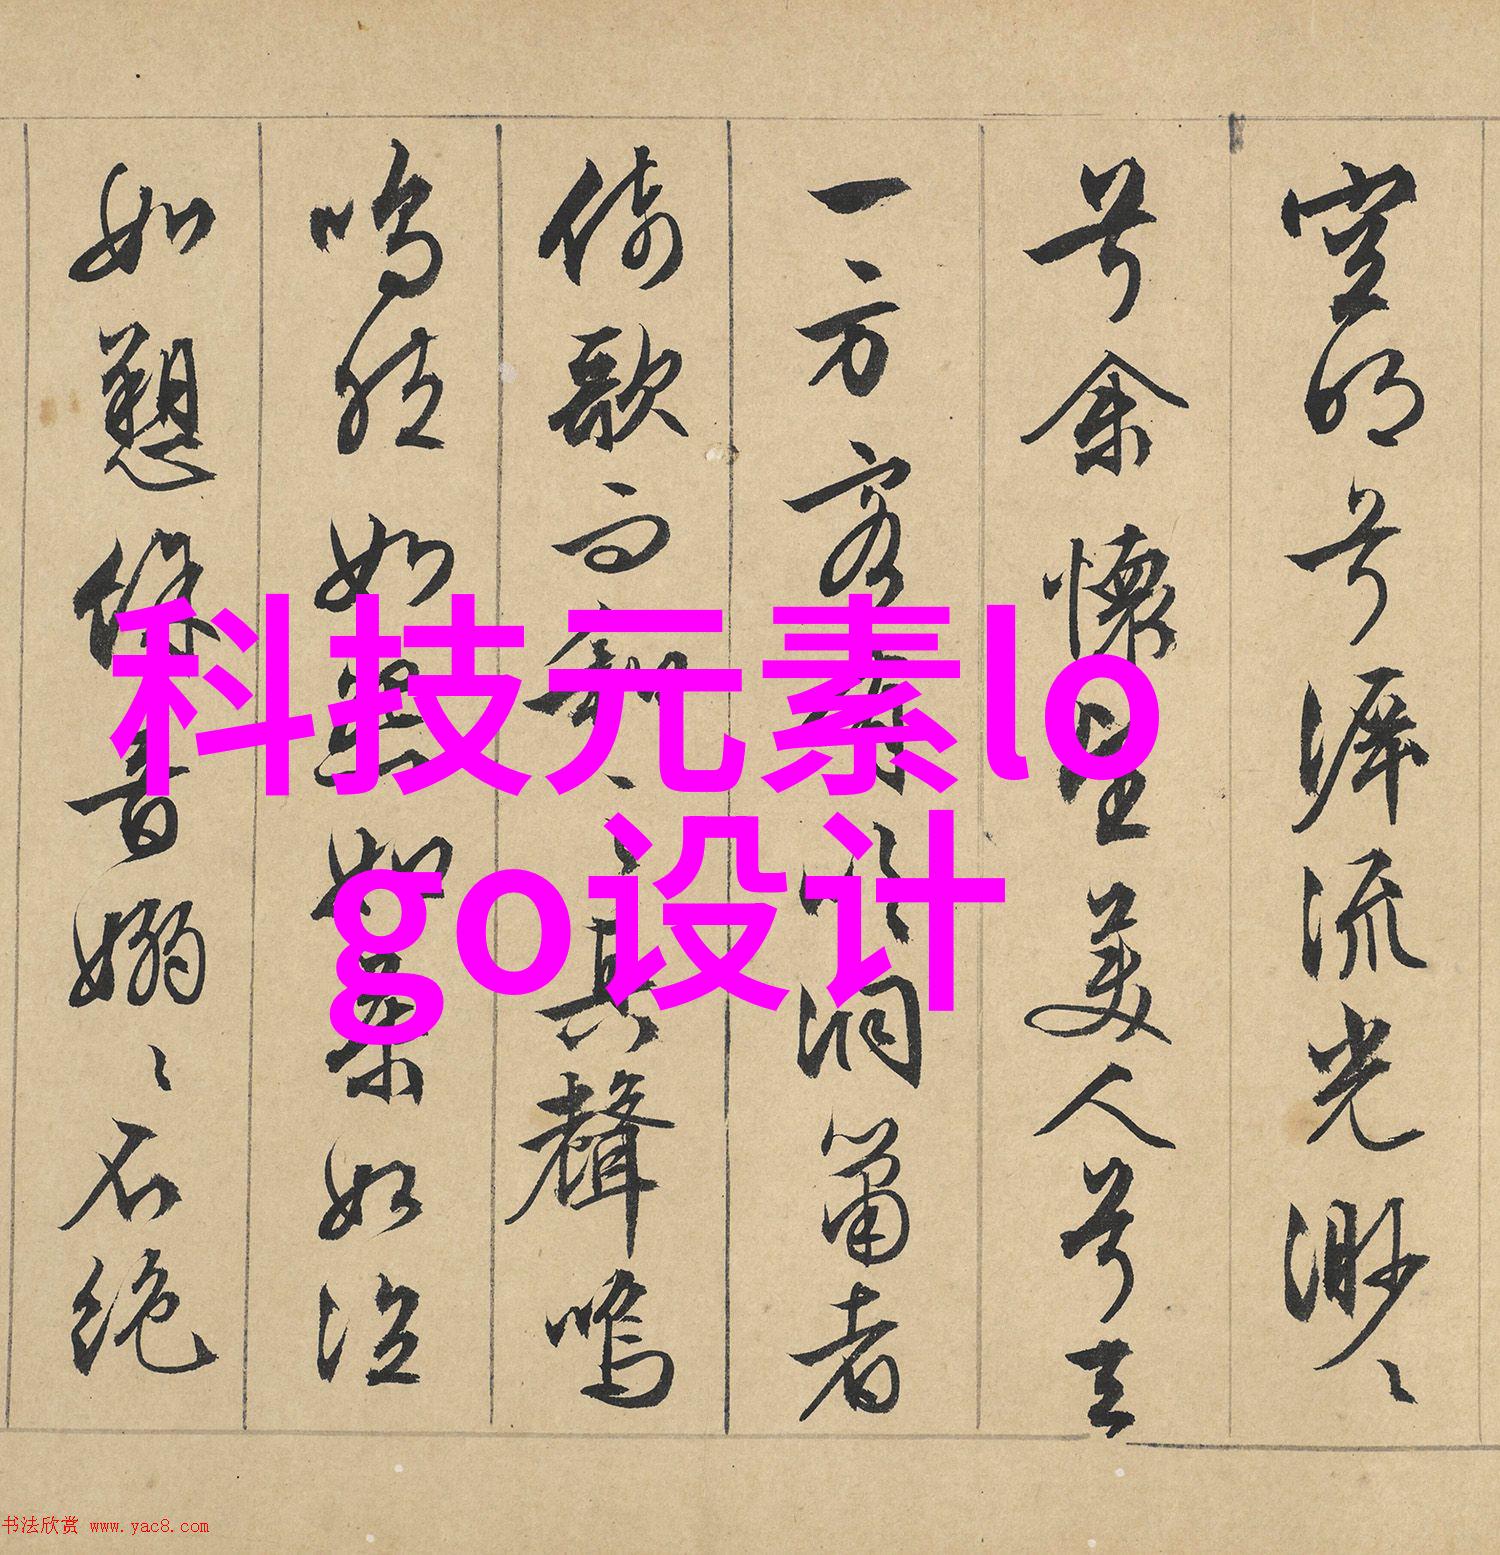 空明兮泝流光渺〻
兮余懷望美人兮天
一方客有吹洞簫者
倚歌而和之其聲嗚
嗚然如怨如慕如泣
如愬餘音嫋〻不絕
科技元素lo
go设计
书法欣赏 www.yac8.com